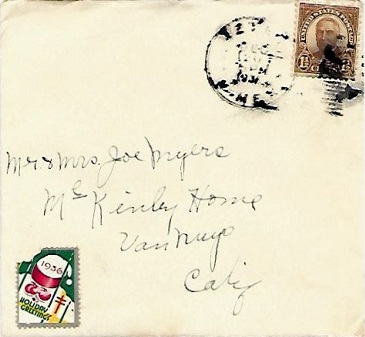 UNITED STATES POSTAGE
1½
Mr & Mrs. Joe Myers
Mc Kinley Home
Van Nuys
Calif
1936
HOLIDAY
GREETINGS